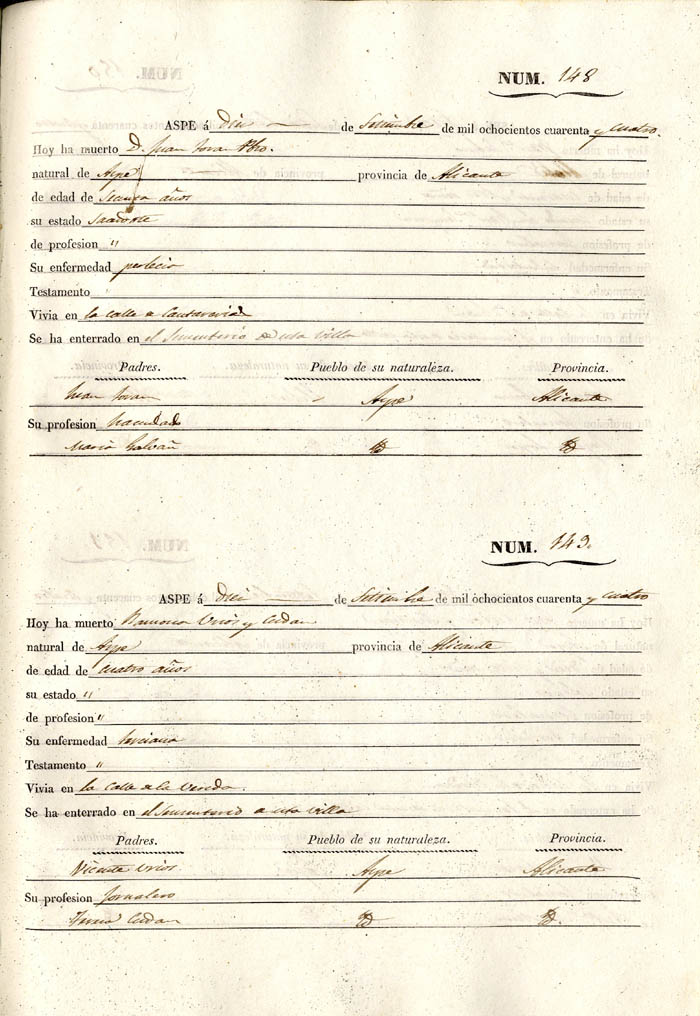 NUM. 148
ASPE á Diez de Setiembre de mil ochocientos cuarenta y cuatro.
Hoy ha muerto D. Juan Pbro.
natural de Aspe provincia de Alicante
de edad de años
su estado
de profesion "
Su enfermedad perlecia
Testamento
Vivia en la calle a
Se ha enterrado en el Sementerio de esta villa
Padres. Pueblo de su naturaleza. Provincia.
Juan Aspe Alicante
Su profesion hacendado
Maria Galvañ Yd Yd
NUM. 149.
ASPE á Diez de Setiembre de mil ochocientos cuarenta y cuatro
Hoy ha muerto Ramona Urios y
natural de Aspe provincia de Alicante
de edad de cuatro años
su estado "
de profesion "
Su enfermedad terciana
Testamento "
Vivia en la calle de la Vereda.
Se ha enterrado en el Sementerio a esta villa
Padres. Pueblo de su naturaleza. Provincia.
Vicente Urios Aspe Alicante
Su profesion Jornalero
Yd Yd.